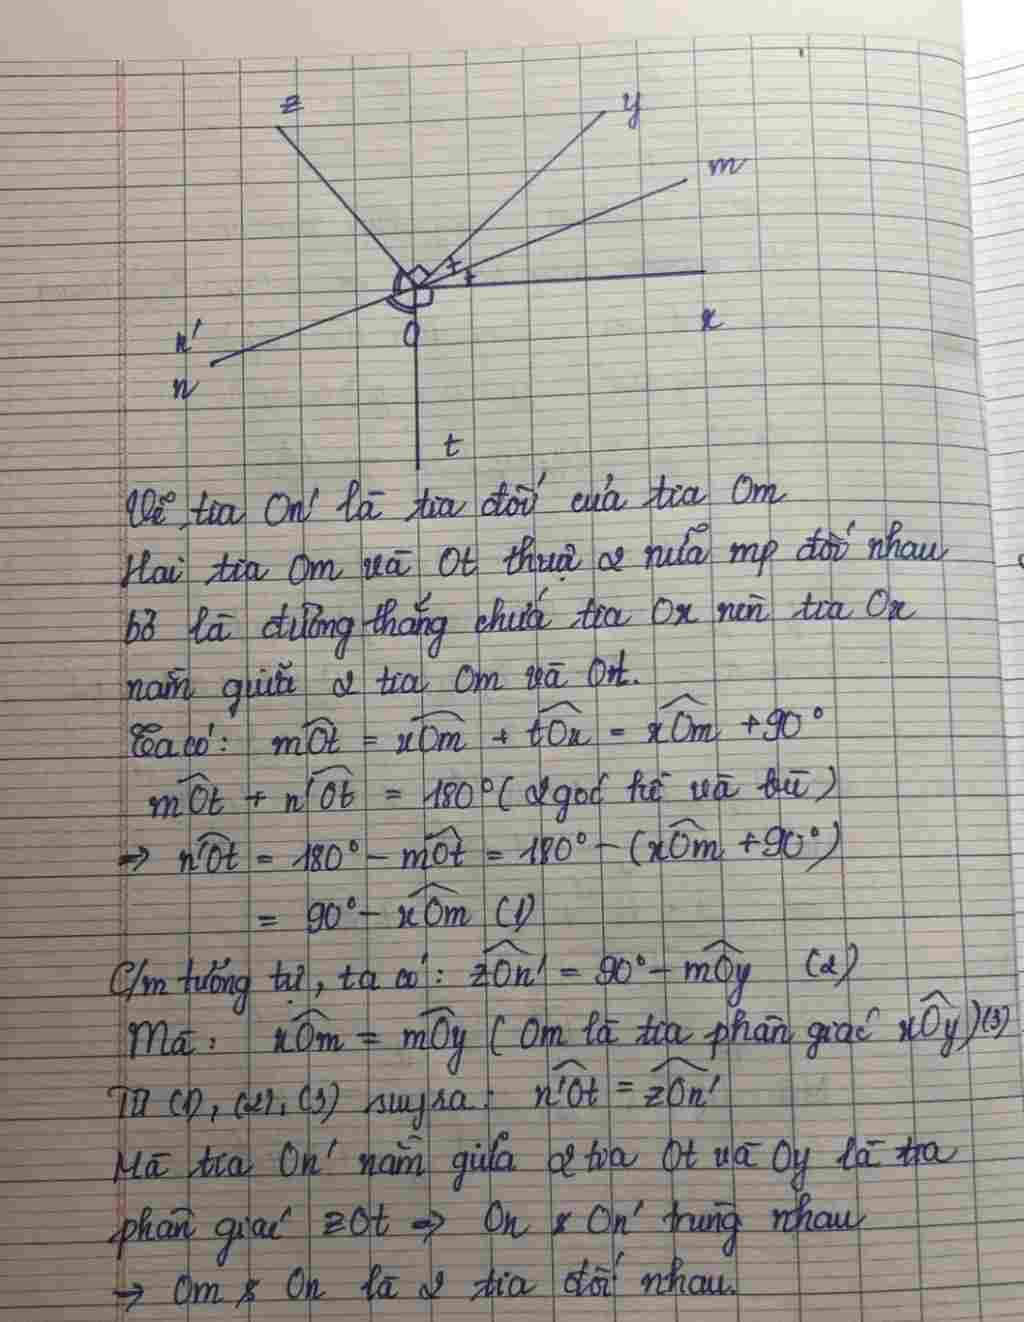 z
y
m
n'
O
x
n
t
Vẽ tia On' là tia đối của tia Om
Hai tia Om và Ot thuộc 2 nửa mp đối nhau
bờ là đường thẳng chứa tia Ox nên tia Ox
nằm giữa 2 tia Om và Ot.
Ta có: mOt = xOm + tOx = xOm + 90°
mOt + n'Ot = 180° (2 góc kề và bù)
→ n'Ot = 180° - mOt = 180° - (xOm + 90°)
= 90° - xOm (1)
C/m tương tự, ta có: zOn' = 90° - mOy (2)
Mà: xOm = mOy (Om là tia phân giác xOy) (3)
Từ (1), (2), (3) suy ra: n'Ot = zOn'
Mà tia On' nằm giữa 2 tia Ot và Oy là tia
phân giác zOt → On & On' trùng nhau
→ Om & On là 2 tia đối nhau.